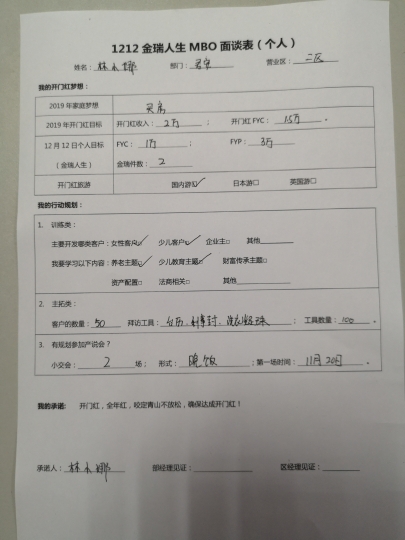 1212 金瑞人生 MBO 面谈表（个人）
姓名：林永娜 部门： 营业区：二区
我的开门红梦想：
2019 年家庭梦想 买房
2019 年开门红目标 开门红收入：2万； 开门红 FYC：15万。
12 月 12 日个人目标（金瑞人生） FYC：1万； FYP：3万
金瑞件数：2
开门红旅游 国内游☑ 日本游□ 英国游□
我的行动规划：
1. 训练类：
主要开发哪类客户：女性客户☑ 少儿客户☑ 企业主□ 其他
我要学习以下内容：养老主题☑ 少儿教育主题☑ 财富传承主题□
资产配置□ 法商相关□ 其他
2. 主拓类：
客户的数量：50 拜访工具：台历、利事封、洗衣凝珠； 工具数量：100。
3. 有规划参加产说会？
小交会：2场； 形式：晚饮；第一场时间：11月20日。
我的承诺： 开门红，全年红，咬定青山不放松，确保达成开门红！
承诺人：林永娜 部经理见证： 区经理见证：